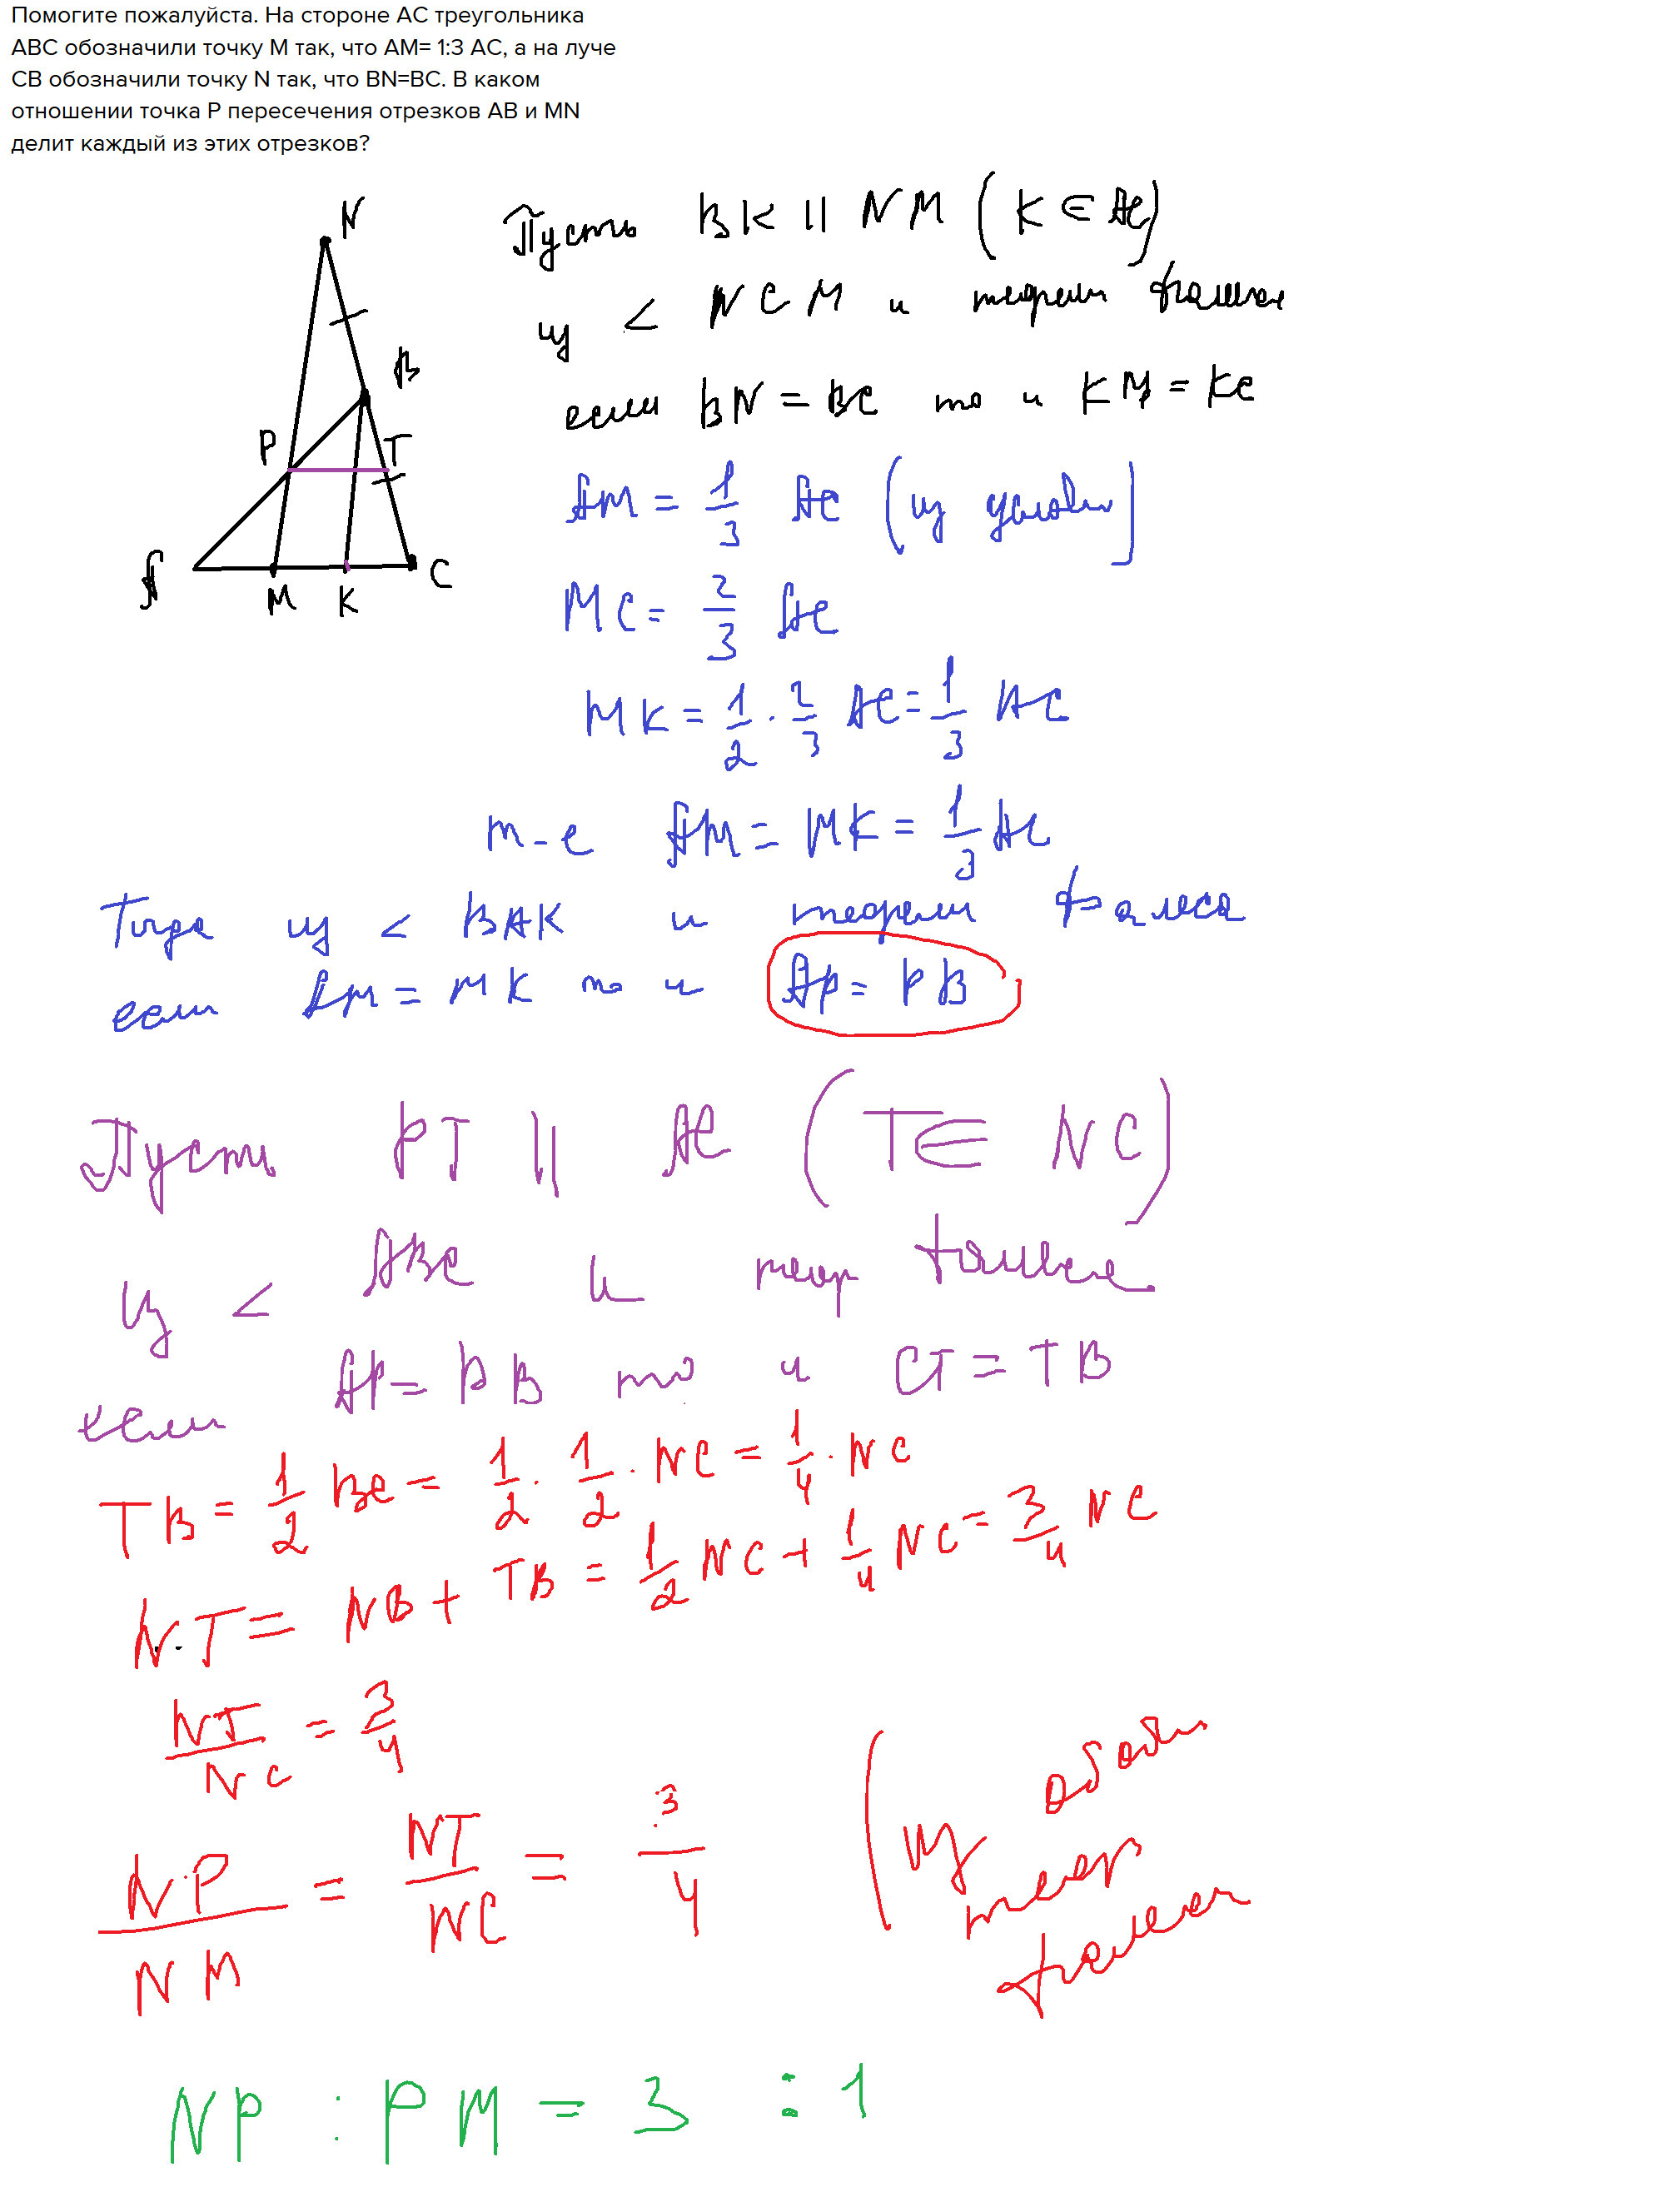 Помогите пожалуйста. На стороне AC треугольника
ABC обозначили точку M так, что AM= 1:3 AC, а на луче
CB обозначили точку N так, что BN=BC. В каком
отношении точка P пересечения отрезков AB и MN
делит каждый из этих отрезков?
N
B
P
T
A
M
K
C
Пусть BK || NM (K ∈ AC)
из < NCM и теорем Фалеса
если BN = BC то и KM = KC
AM = 1/3 AC (из условия)
MC = 2/3 AC
MK = 1/2 · 2/3 AC = 1/3 AC
т-е AM = MK = 1/3 AC
Тогда из < BAK и теорем Фалеса
если AM = MK то и AP = PB
Пусть PT || AC (T ∈ NC)
из < ABC и теор Фалеса
если AP = PB то и CT = TB
TB = 1/2 BC = 1/2 · 1/2 · NC = 1/4 · NC
NT = NB + TB = 1/2 NC + 1/4 NC = 3/4 NC
NT/NC = 3/4
NP/NM = NT/NC = 3/4 (из обобщ
теор
Фалеса
NP : PM = 3 : 1